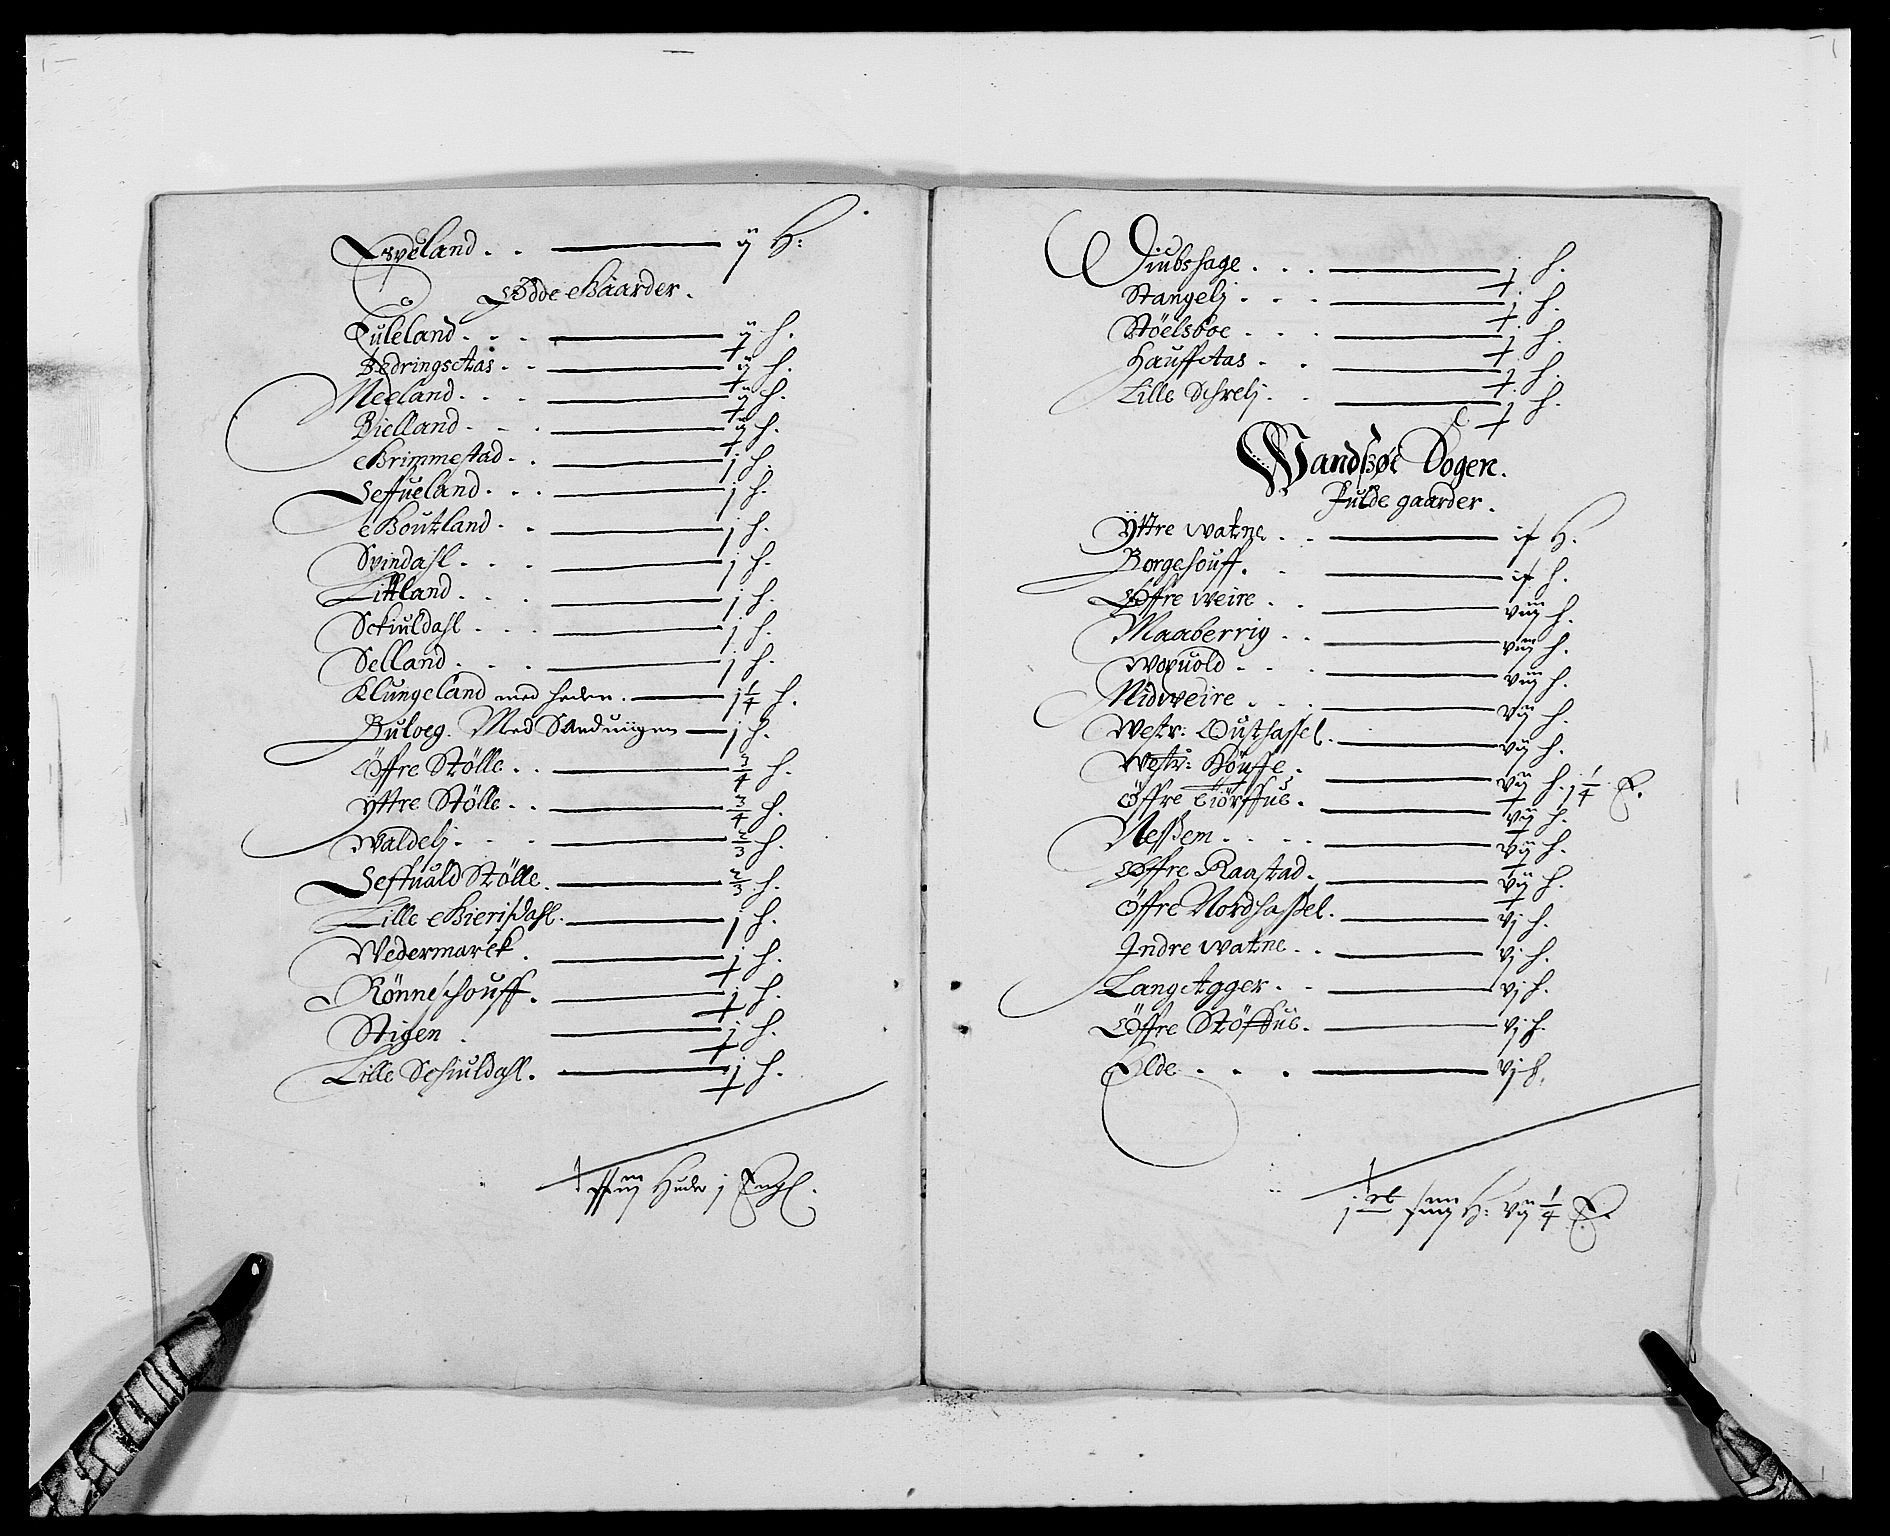 Espeland . . ij H:
Ødde Gaarder.
Juleland . . . ij h.
Bedrings Aas . . ij h.
Meeland . . . ij h.
Bielland . . . ij h.
Grimmestad . . j h.
Seffueland . . . j h.
Goutland . . j h.
Svindahl . . . j h.
Littland . . . j h.
Sckiuldahl . . . j h.
Selland . . . j h.
Klungeland med heden . j 1/4 h.
Buloeg. Med Sanduiigen j h.
Öffre Stölle . . 3/4 h.
Yttre Stölle . . 3/4 h.
Waldelj . . . 2/3 h.
Seffuald Stölle . 2/3 h.
Lille Gierisdahl . j h.
Wedermarck . j h.
Rönneschouff . j h.
Stigen . j h.
Lille Schiuldahl . j h.
Huder j Engl.
Diubshage . . . j h.
Stangelj . . . j h.
Stöelsboe . . . j h.
Hauff Aas . . j h.
Lille Schrelj . . j h.
Wandsøe Dogen.
Fulde gaarder.
Yttre watne . . ix H.
Borgehouff . . ix h.
Øffre weire . . viij h.
Maaberrig . . viij h.
Woxuold . . . viij h.
Midweire . . . vij h.
Westr: Outhassel . vij h.
Westr: Houffe . vij h. j 1/4 E.
Öffre Tiörffue . vij h.
Nessem . . . . vij h.
Øffre Raastad . vij h.
Öffre Nordhassel . vj h.
Indre watne . . vj h.
Lang Agger . . vj h.
Öffre Stöffue . vj h.
Elde . . . vj h.
H: vij 1/4 E.